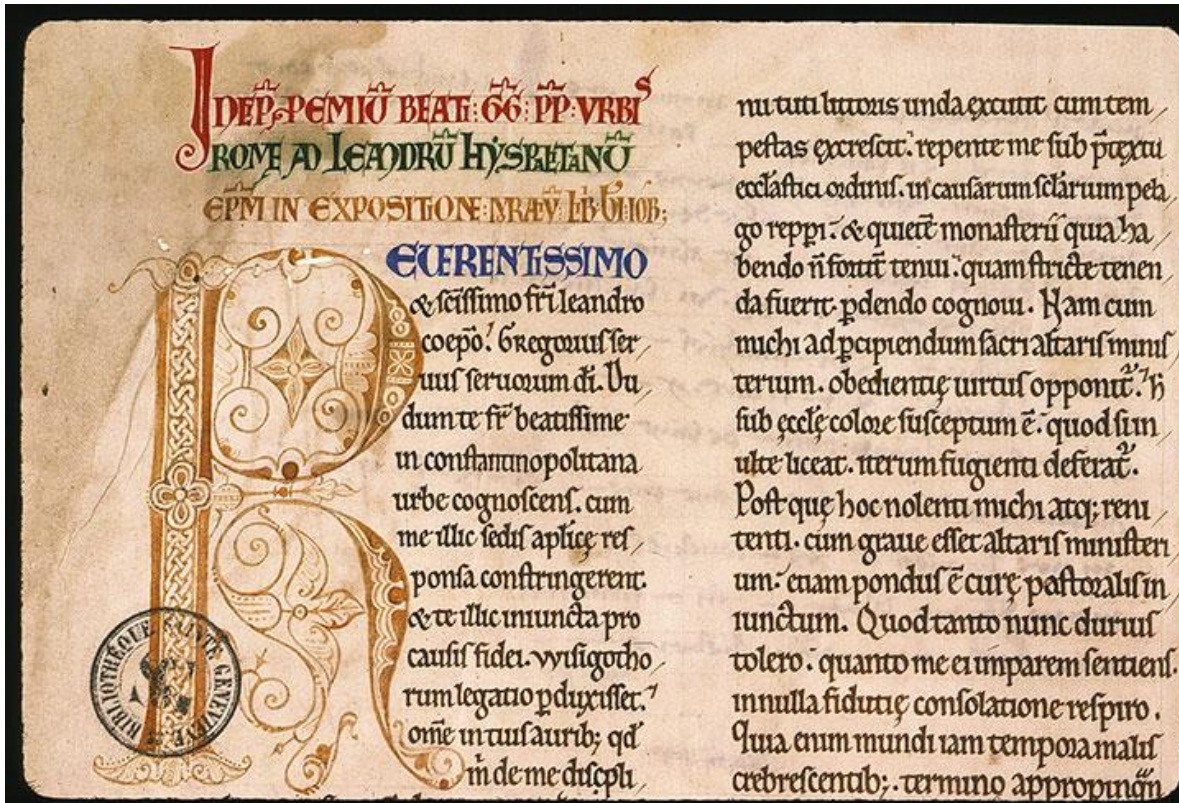 INCIP̅ P̲EMIŪ BEATI G̅G̅ P̅P̅ VRBIS
ROME AD LEANDRŪ HYSPLETANŪ
EP̅M IN EXPOSITIONE LIB̅ IOB;
REVERENTISSIMO
& sc̅issimo fr̅i leandro
coep̅o. Gregorius ser
uus seruorum d̅i. Du
dum te fr̅ beatissime
in constantinopolitana
urbe cognoscens. cum
me illic sedis aplic̅ę res
ponsa constringerent.
& te illic iniuncta pro
causis fidei. vvisigotho
rum legatio ꝑduxisset.
om̅e in tuis aurib; qd̅
m̅ de me displi
nu tuti littoris unda excutit cum tem
pestas excrescit. repente me sub p̅textu
eccl̅astici ordinis. in causarum sc̅larium pela
go repperi. & quietē monasterii quia ha
bendo n̅ fortit̅ tenui. quam stricte tenen
da fuerit. ꝑdendo cognoui. Nam cum
michi ad p̅cipiendum sacri altaris minis
terium. obedientię uirtus opponit᷑. h̅
sub ęccl̅ę colore susceptum ē. quod si in
ulte liceat. iterum fugienti deferat᷑.
Post quę hoc nolenti michi atq; reni
tenti. cum graue esset altaris ministeri
um. etiam pondus ē curę pastoralis in
iunctum. Quod tanto nunc durius
tolero. quanto me ei imparem sentiens.
in nulla fidutię consolatione respiro.
Quia enim mundi iam tempora malis
crebrescentib;. termino appropinqn̅
BIBLIOTHÈQUE SAINTE GENEVIEVE